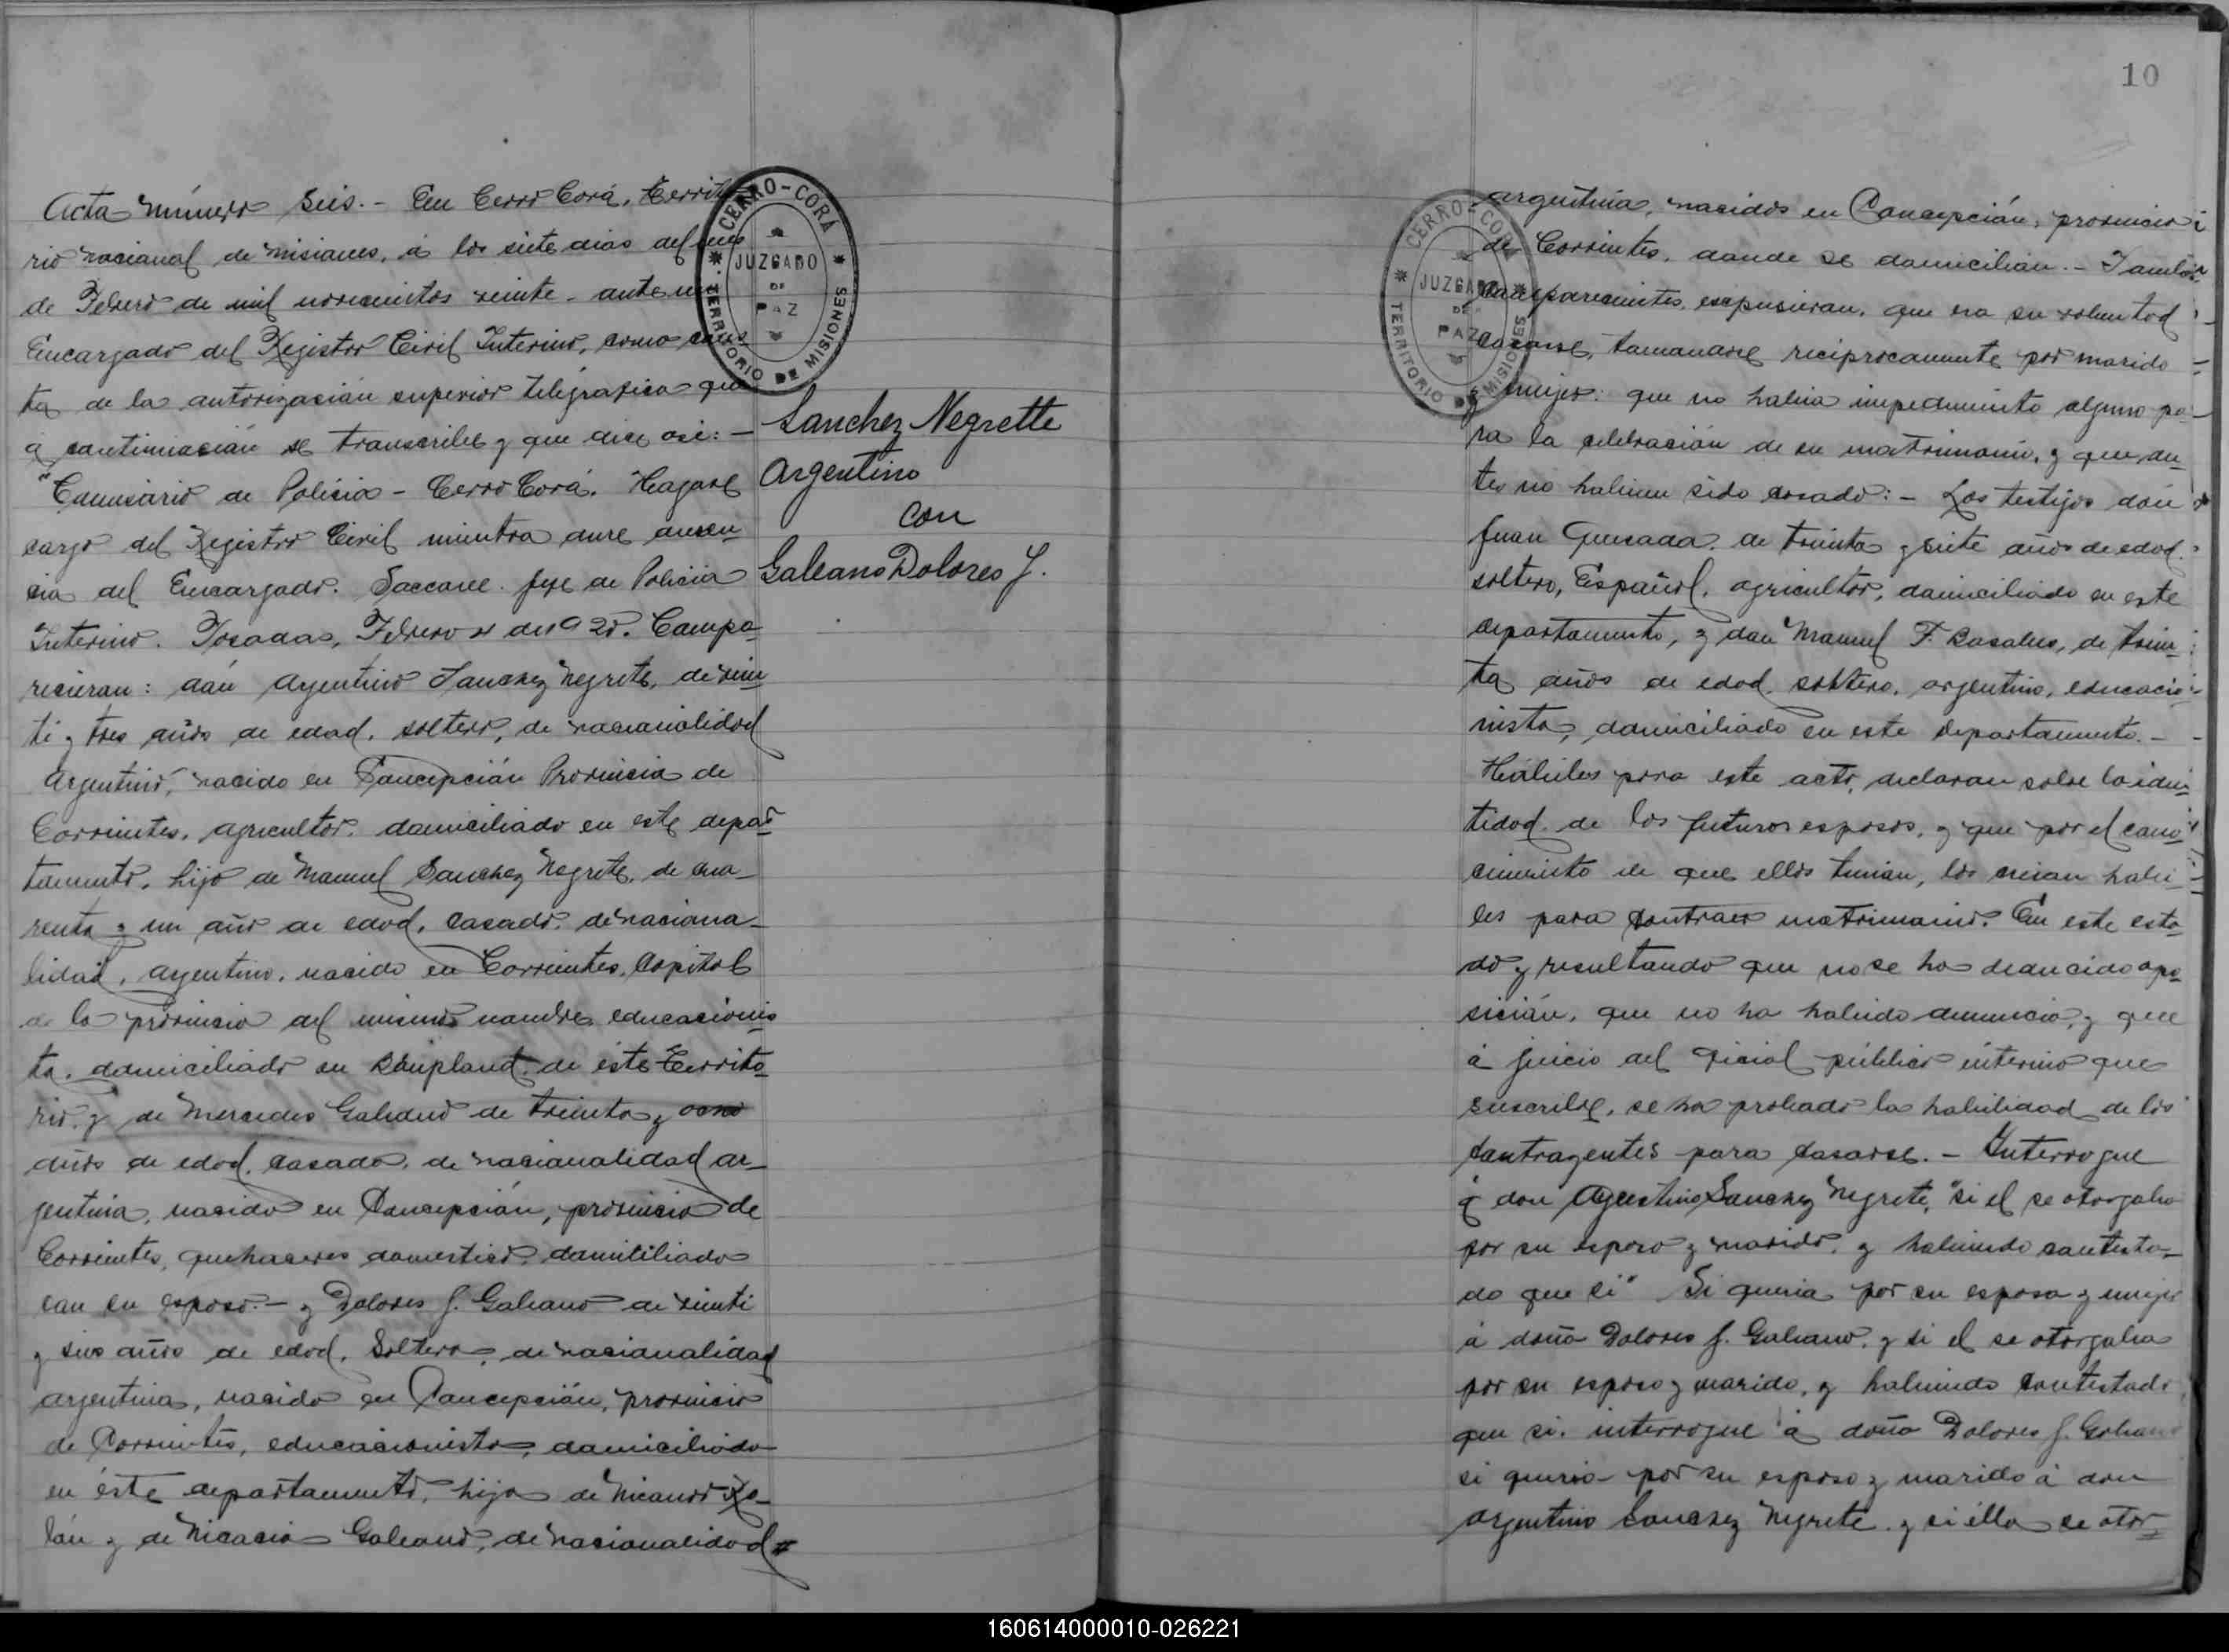 Acta número Seis.- En Cerro Corá, Territo
rio nacional de Misiones, á los siete dias del mes
de Febrero de mil novecientos veinte - ante mi
Encargado del Registro Civil Interino, como cons
ta de la autorización superior telegrafica que
a continuación se transcribe y que dice asi: -
"Comisario de Policia - Cerro Corá. Hagase
cargo del Registro Civil mientra dure ausen
cia del Encargado. Saccone. Jefe de Policia
Interino. Posadas, Febrero 4 de 1920. Compa
recieran: dón Argentino Sanchez Negrete, de vein
ti y tres años de edad, soltero, de nacionalidad
Argentino, nacido en Concepción Provincia de
Corrientes, agricultor, domiciliado en este depar
tamento, hijo de Manuel Sanchez Negrete, de cua-
renta y un año de edad, casado, de naciona-
lidad, argentino, nacido en Corrientes, Capital
de la provincia del mismo nombre, educacionis
ta, domiciliado en Bonpland, de éste Territo
rio, y de Mercedes Galeano de treinta y ocho
años de edad, casada, de nacionalidad ar-
gentina, nacida en Concepción, provincia de
Corrientes, quehaceres domestico, domiciliada
con su esposo.- y Dolores J. Galeano de veinti
y seis años de edad, Soltera, de nacionalidad
argentina, nacida en Concepción, provincia
de Corrientes, educacionista, domiciliada
en éste departamento, hija de Nicanor Ro-
lón y de Nicacia Galeano, de nacionalidad
CERRO-CORÁ
JUZGADO
DE
PAZ
TERRITORIO DE MISIONES
Sanchez Negrette
Argentino
con
Galeano Dolores J.
10
CERRO-CORÁ
JUZGADO
DE
PAZ
TERRITORIO DE MISIONES
argentina, nacidos en Concepción, provincia
de Corrientes, donde se domicilian.- Tambien
comparecientes, expusieran, que era su voluntad
casarse, tomandose reciprocamente por marido
y mujer: que no habia impedimento alguno pa-
ra la celebración de su matrimonio, y que an-
tes no habian sido casado:- Los testigos don
Juan Quesada, de treinta y siete años de edad,
soltero, Español, agricultor, domiciliado en este
departamento, y don Manuel F. Basales, de trein-
ta años de edad, soltero, argentino, educacio-
nista, domiciliado en este departamento.-
Hábiles para este acto, declaran sobre la iden-
tidad de los futuros esposos, y que por el cono-
cimiento de que ellos tenian, los creian habi-
les para contraer matrimonio. En este esta-
do y resultando que no se ha deducido opo-
sición, que no ha habido denuncia, y que
á juicio del oficial público interino que
suscribe, se ha probado la habilidad de los
contrayentes para casarse.- Interrogue
á don Argentino Sanchez Negrete, "si el se otorgaba
por su esposo y marido, y habiendo contesta-
do que si" Si queria por su esposa y mujer
á doña Dolores J. Galeano, y si el se otorgaba
por su esposo y marido, y habiendo contestado
que si, interrogue á doña Dolores J. Galeano
si queria por su esposo y marido á don
Argentino Sanchez Negrete y si élla se otor-
160614000010-026221